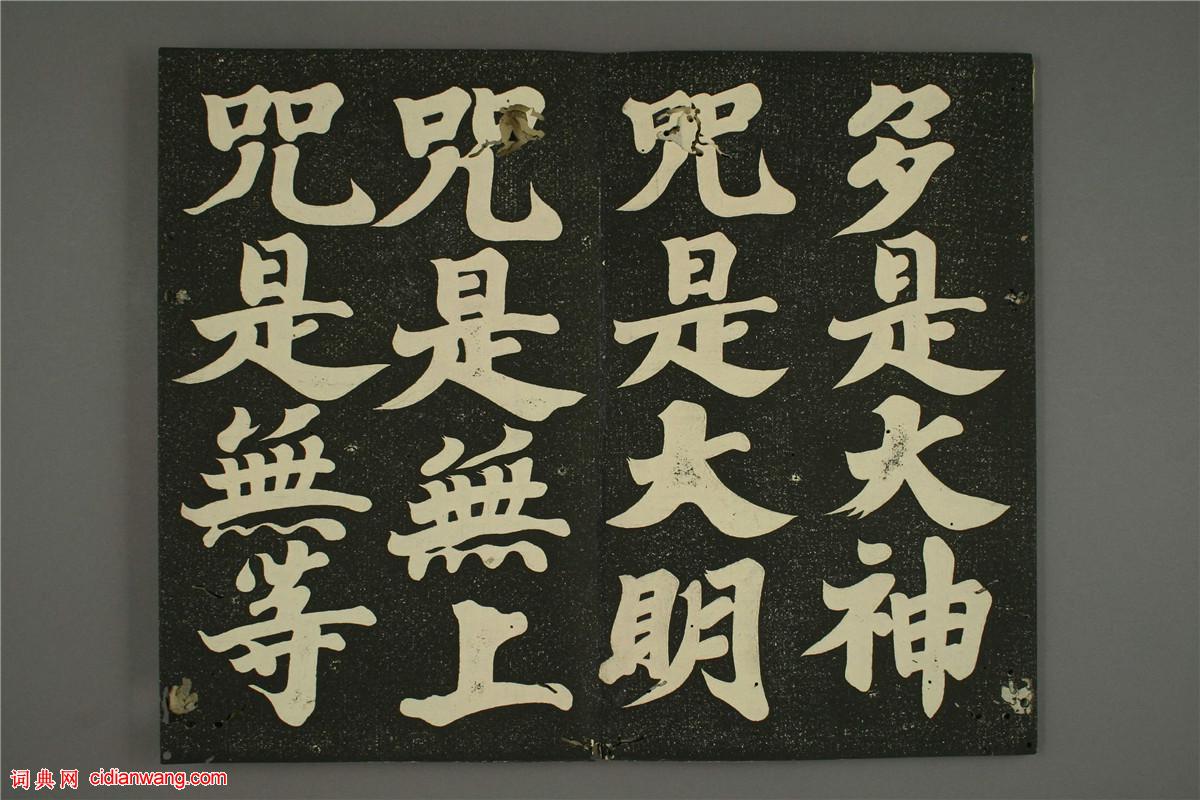 多是大神
咒是大明
咒是無上
咒是無等
词典网 cidianwang.com